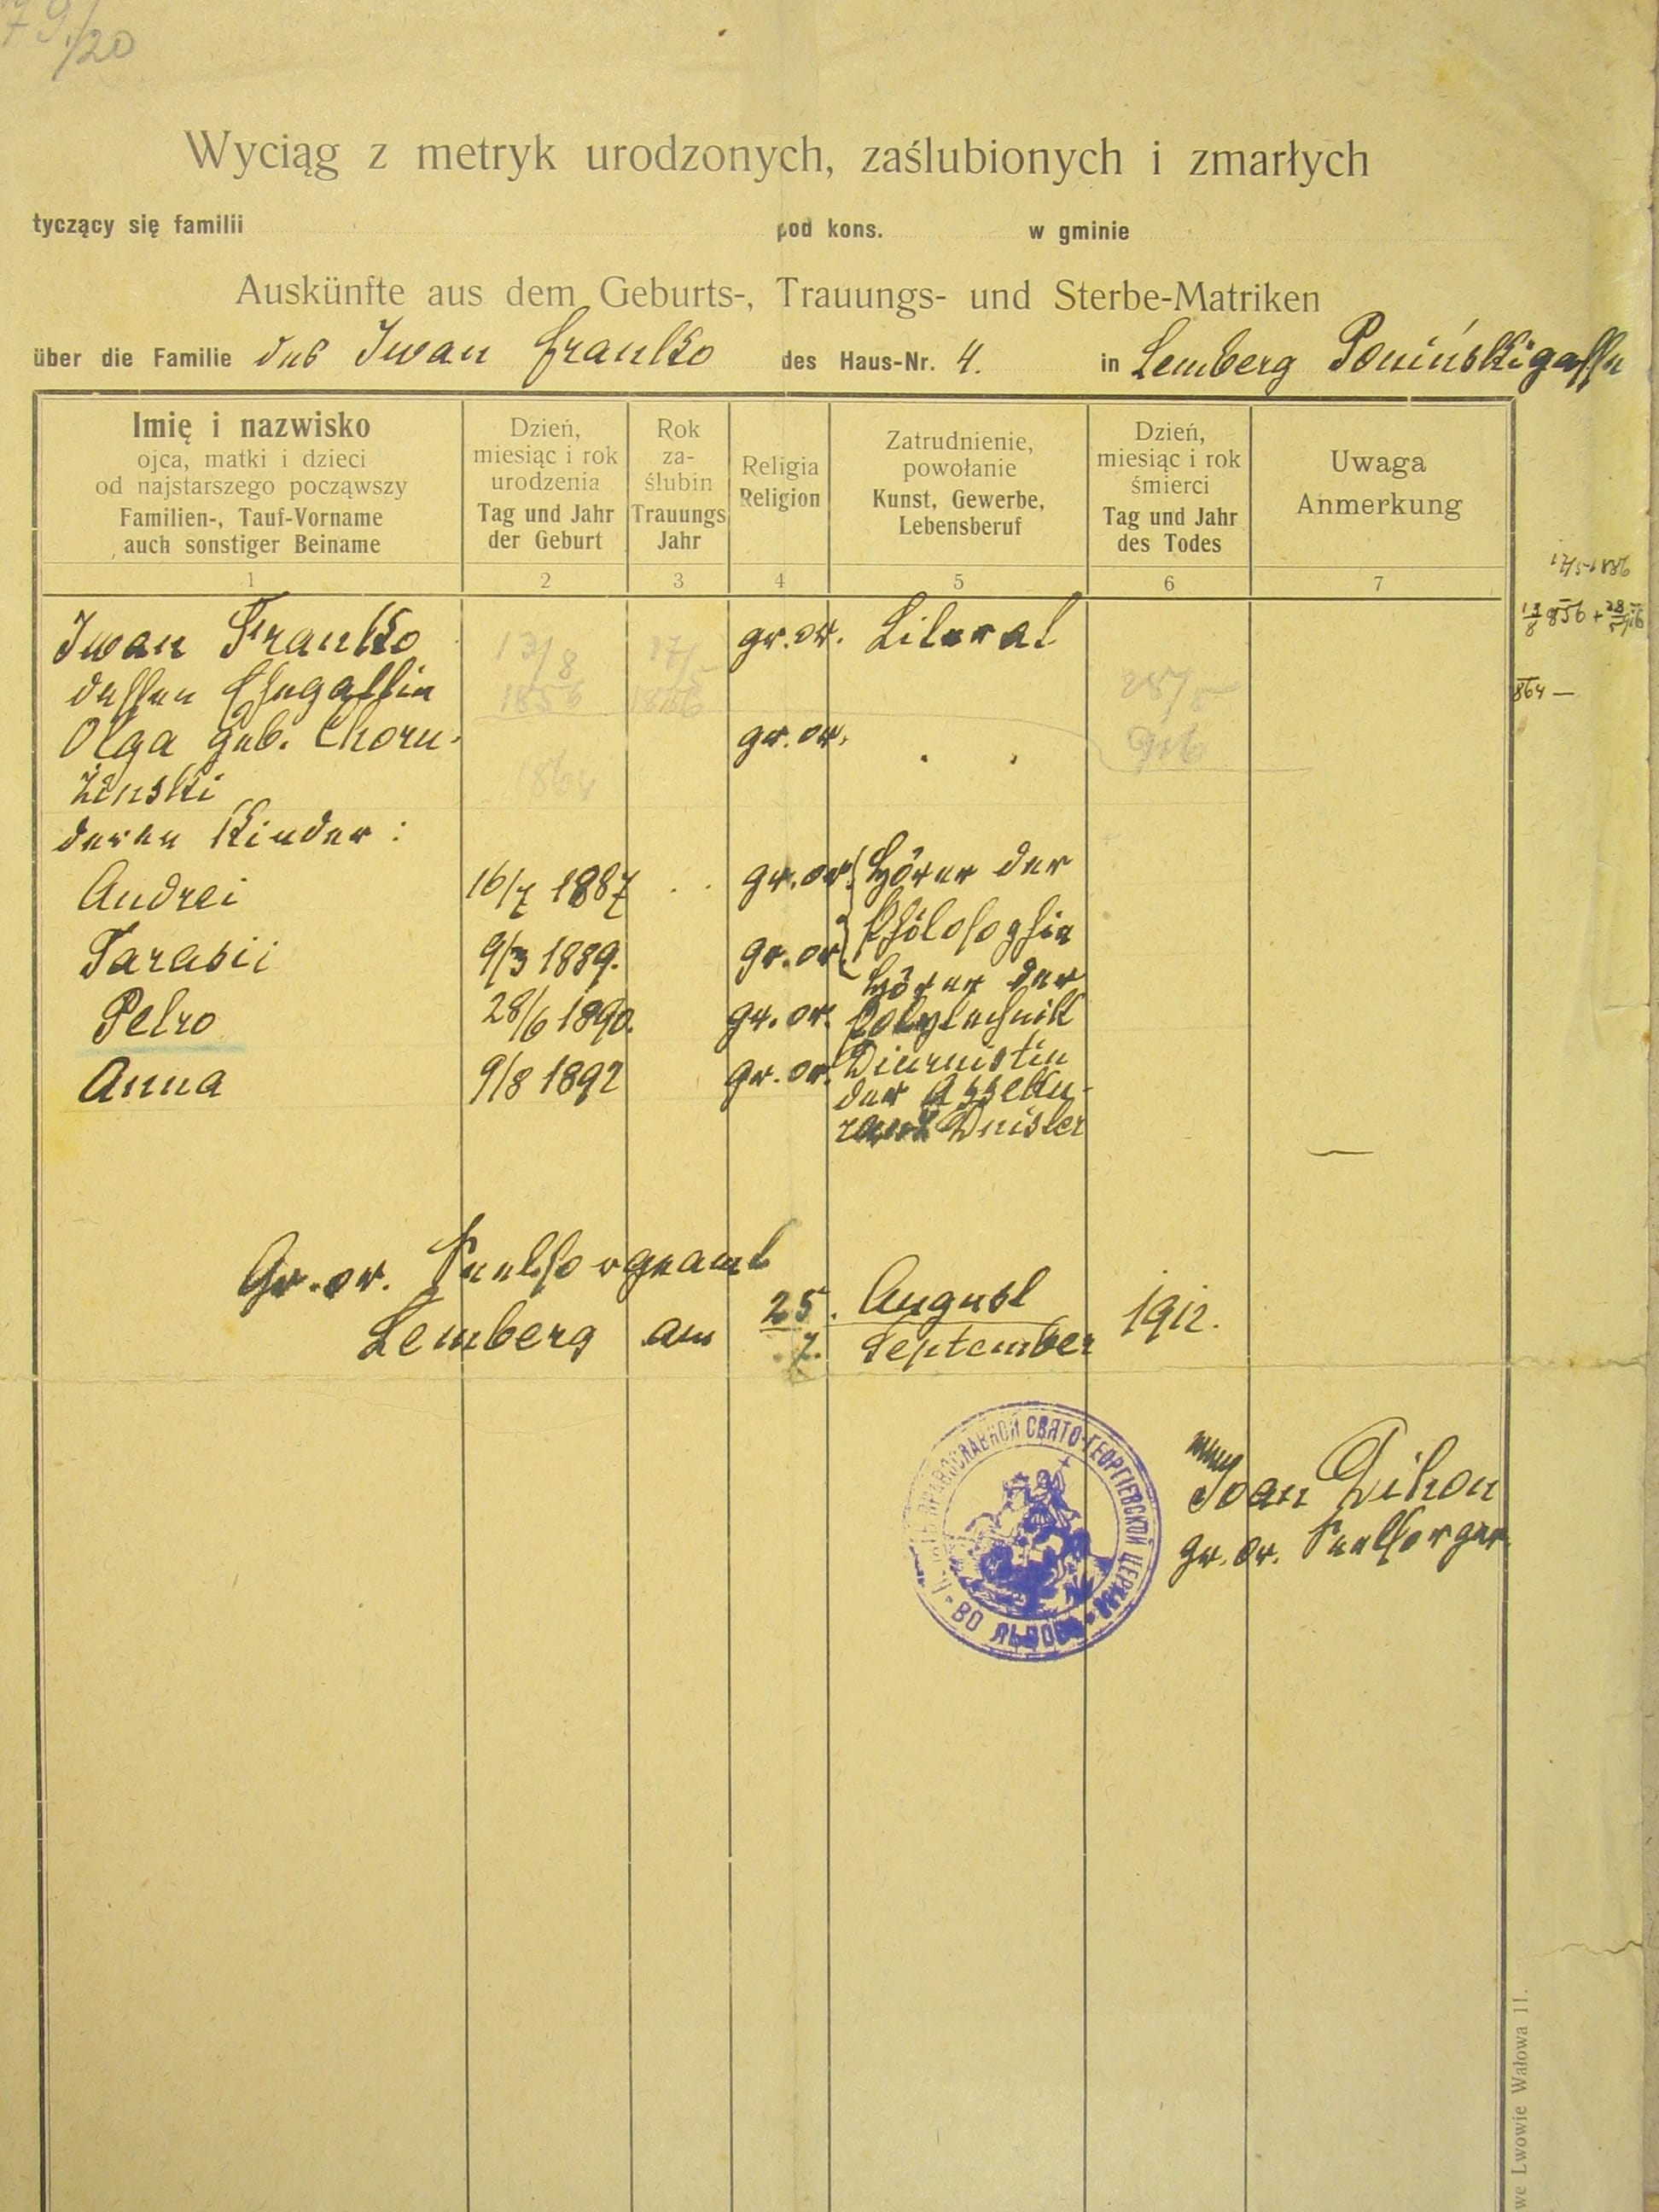 79/20
Wyciąg z metryk urodzonych, zaślubionych i zmarłych
tyczący się familii pod kons. w gminie
Auskünfte aus dem Geburts-, Trauungs- und Sterbe-Matriken
über die Familie des Iwan Franko des Haus-Nr. 4. in Lemberg Ponińskigasse
Imię i nazwisko
ojca, matki i dzieci
od najstarszego począwszy
Familien-, Tauf-Vorname
auch sonstiger Beiname
Dzień,
miesiąc i rok
urodzenia
Tag und Jahr
der Geburt
Rok
za-
ślubin
Trauungs
Jahr
Religia
Religion
Zatrudnienie,
powołanie
Kunst, Gewerbe,
Lebensberuf
Dzień,
miesiąc i rok
śmierci
Tag und Jahr
des Todes
Uwaga
Anmerkung
1 2 3 4 5 6 7
17/5 1886
13/8 856 + 28/5 916
864 —
Iwan Franko 13/8 1856 17/5 1886 gr. or. Literat 28/5 916
dessen Ehegattin
Olga geb. Choru- gr. or.
żinski 1864
deren Kinder:
Andrei 16/7 1887 gr. or. Hörer der
Tarasii 9/3 1889. gr. or. Philosophie
Hörer der
Petro 28/6 1890. gr. or. Polytechnik
Anna 9/8 1892 gr. or. Diurnistin
der Asseku-
ranz Dnister
Gr. or. Seelsorgeamt
Lemberg am 25. August / 7. September 1912.
ПРАВОСЛАВНОЙ СВЯТО-ГЕОРГІЕВСКОЙ ЦЕРКВИ
ВО ЛЬВОВѢ
Ioan Tihon
gr. or. Seelsorger
we Lwowie Wałowa 11.